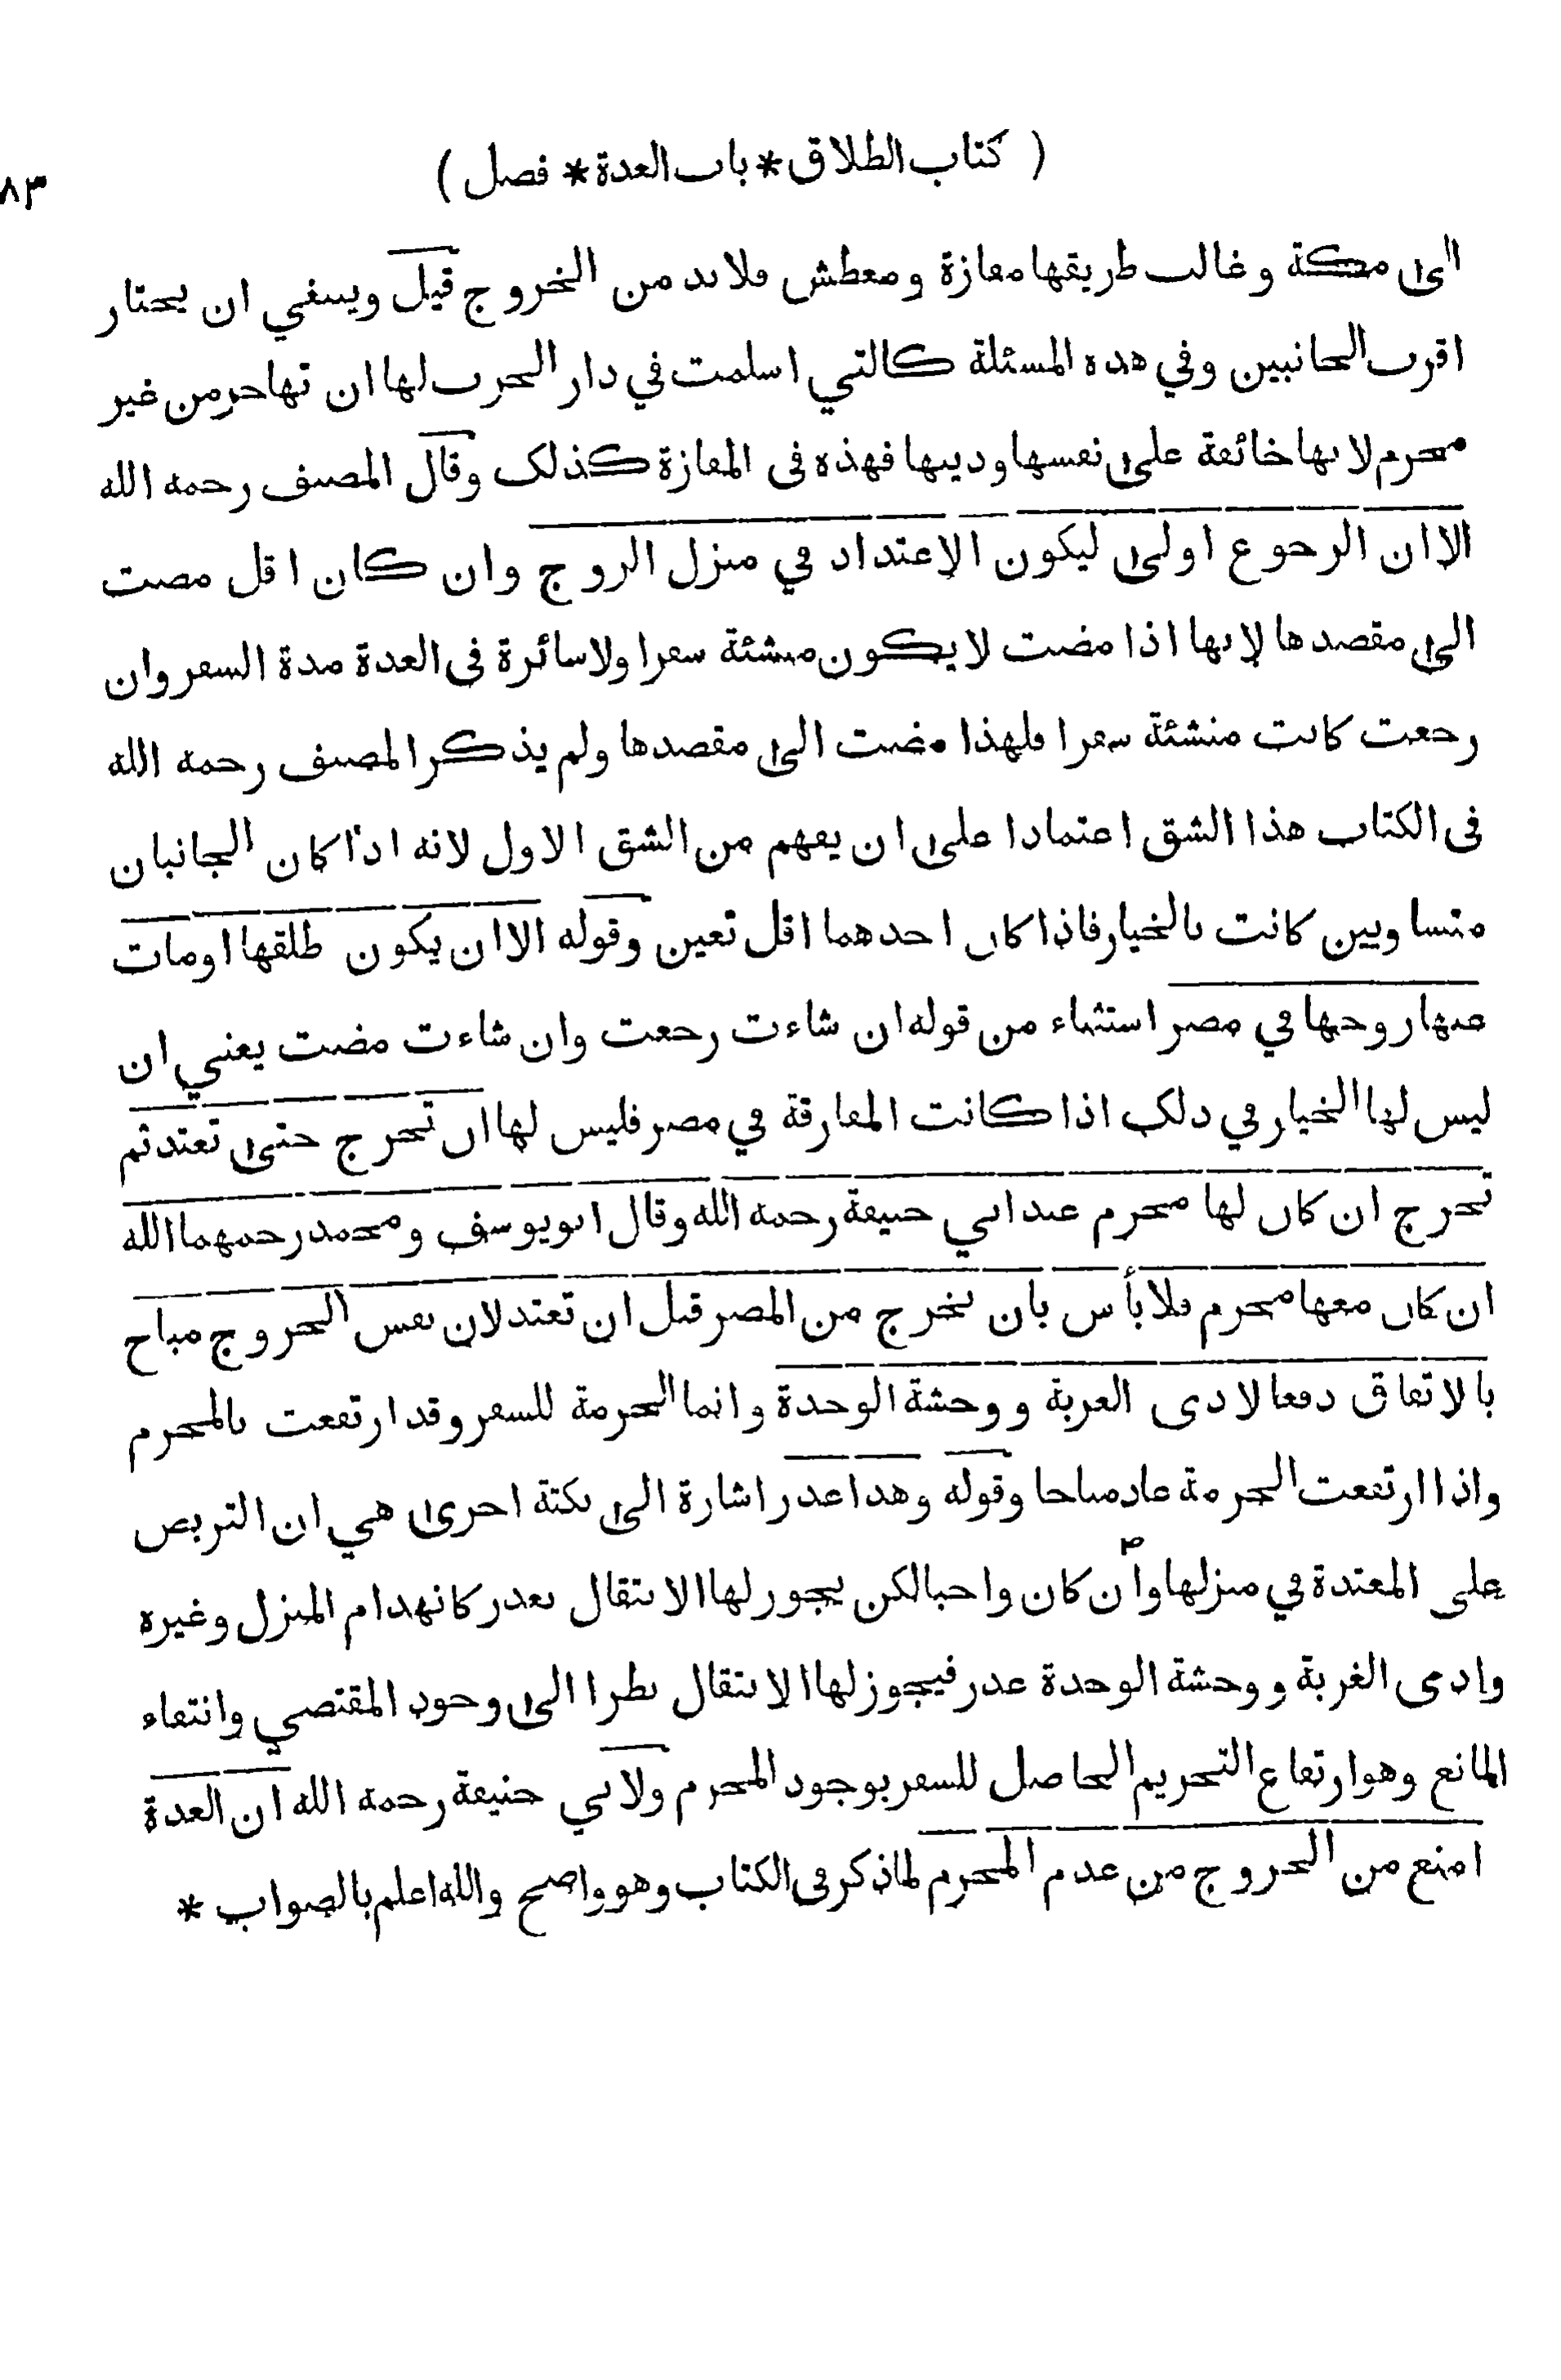 ( كتاب الطلاق * باب العدة * فصل )
٨٣
الى مكة وغالب طريقها مفازة ومعطش فلا بد من الخروج قيل وينبغي ان يختار
اقرب الجانبين وفي هذه المسئلة كالتي اسلمت في دار الحرب لها ان تهاجر من غير
محرم لانها خائفة على نفسها ودينها فهذه في المفازة كذلك وقال المصنف رحمه الله
الا ان الرجوع اولى ليكون الاعتداد في منزل الزوج وان كان اقل مضت
الى مقصدها لانها اذا مضت لا يكون منشئة سفرا ولا سائرة في العدة مدة السفر وان
رجعت كانت منشئة سفرا فلهذا مضت الى مقصدها ولم يذكر المصنف رحمه الله
في الكتاب هذا الشق اعتمادا على ان يفهم من الشق الاول لانه اذا كان الجانبان
متساويين كانت بالخيار فاذا كان احدهما اقل تعين وقوله الا ان يكون طلقها او مات
عنها زوجها في مصر استثناء من قوله ان شاءت رجعت وان شاءت مضت يعني ان
ليس لها الخيار في ذلك اذا كانت المفارقة في مصر فليس لها ان تخرج حتى تعتد ثم
تخرج ان كان لها محرم عند ابي حنيفة رحمه الله وقال ابو يوسف ومحمد رحمهما الله
ان كان معها محرم فلا بأس بان تخرج من المصر قبل ان تعتد لان نفس الخروج مباح
بالاتفاق دفعا لاذى الغربة ووحشة الوحدة وانما الحرمة للسفر وقد ارتفعت بالمحرم
واذا ارتفعت الحرمة عاد مباحا وقوله وهذا عذر اشارة الى نكتة اخرى هي ان التربص
على المعتدة في منزلها وان كان واجبا لكن يجوز لها الانتقال بعذر كانهدام المنزل وغيره
واذى الغربة ووحشة الوحدة عذر فيجوز لها الانتقال نظرا الى وجود المقتضي وانتفاء
المانع وهو ارتفاع التحريم الحاصل للسفر بوجود المحرم ولابي حنيفة رحمه الله ان العدة
امنع من الخروج من عدم المحرم لما ذكر في الكتاب وهو واضح والله اعلم بالصواب *